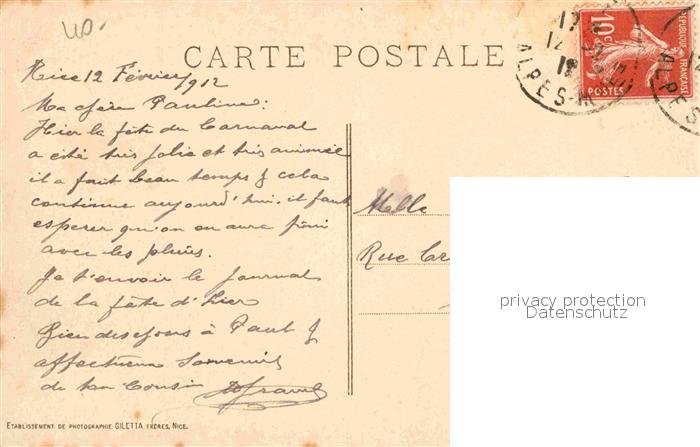 CARTE POSTALE
Nice 12 Février 1912
Ma chère Pauline :
Hier la fête du Carnaval
a été très jolie et très animée
il a fait beau temps & cela
continue aujourd'hui. il faut
espérer qu'on en aura fini
avec les pluies.
Je t'envoie le journal
de la fête d'hier
Bien des choses à Paul &
affectueux souvenir
de ton Cousin
ETABLISSEMENT DE PHOTOGRAPHIE GILETTA FRÈRES, NICE.
10c
REPUBLIQUE FRANÇAISE
POSTES
ALPES-M
ALPES
Melle
Rue
privacy protection
Datenschutz